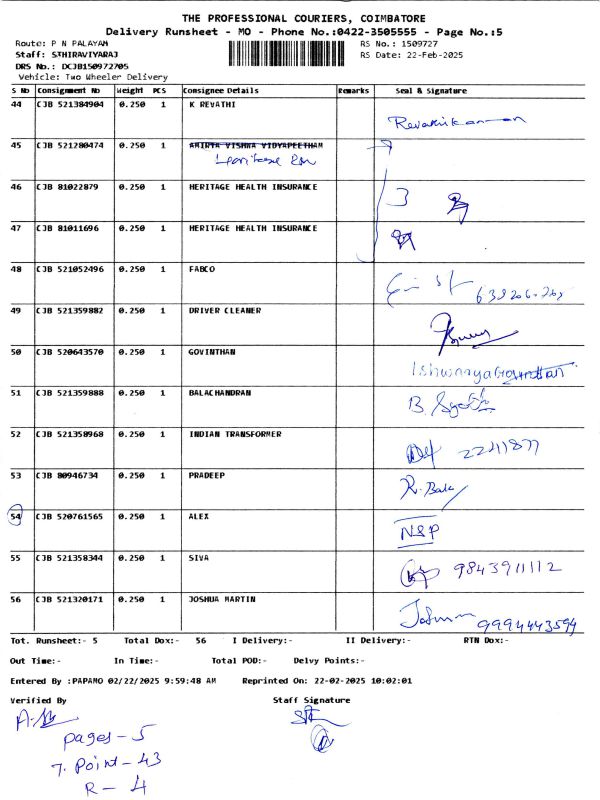 THE PROFESSIONAL COURIERS, COIMBATORE
Delivery Runsheet - MO - Phone No.:0422-3505555 - Page No.:5
Route: P N PALAYAM
RS No.: 1509727
Staff: STHIRAVIYARAJ
RS Date: 22-Feb-2025
DRS No.: DCJB150972705
Vehicle: Two Wheeler Delivery
S No Consignment No Weight PCS Consignee Details Remarks Seal & Signature
44 CJB 521384904 0.250 1 K REVATHI
45 CJB 521280474 0.250 1 AMIRTA VISHWA VIDYAPEETHAM
46 CJB 81022879 0.250 1 HERITAGE HEALTH INSURANCE
47 CJB 81011696 0.250 1 HERITAGE HEALTH INSURANCE
48 CJB 521052496 0.250 1 FABCO
49 CJB 521359882 0.250 1 DRIVER CLEANER
50 CJB 520643570 0.250 1 GOVINTHAN
51 CJB 521359888 0.250 1 BALACHANDRAN
B.
52 CJB 521358968 0.250 1 INDIAN TRANSFORMER
53 CJB 80946734 0.250 1 PRADEEP
R. Bala
54 CJB 520761565 0.250 1 ALEX
NSP
55 CJB 521358344 0.250 1 SIVA
9843911112
56 CJB 521320171 0.250 1 JOSHUA MARTIN
9994443594
Tot. Runsheet:- 5 Total Dox:- 56 I Delivery:- II Delivery:- RTN Dox:-
Out Time:- In Time:- Total POD:- Delvy Points:-
Entered By :PAPAMO 02/22/2025 9:59:48 AM Reprinted On: 22-02-2025 10:02:01
Verified By Staff Signature
pages - 5
7. Point - 43
R - 4